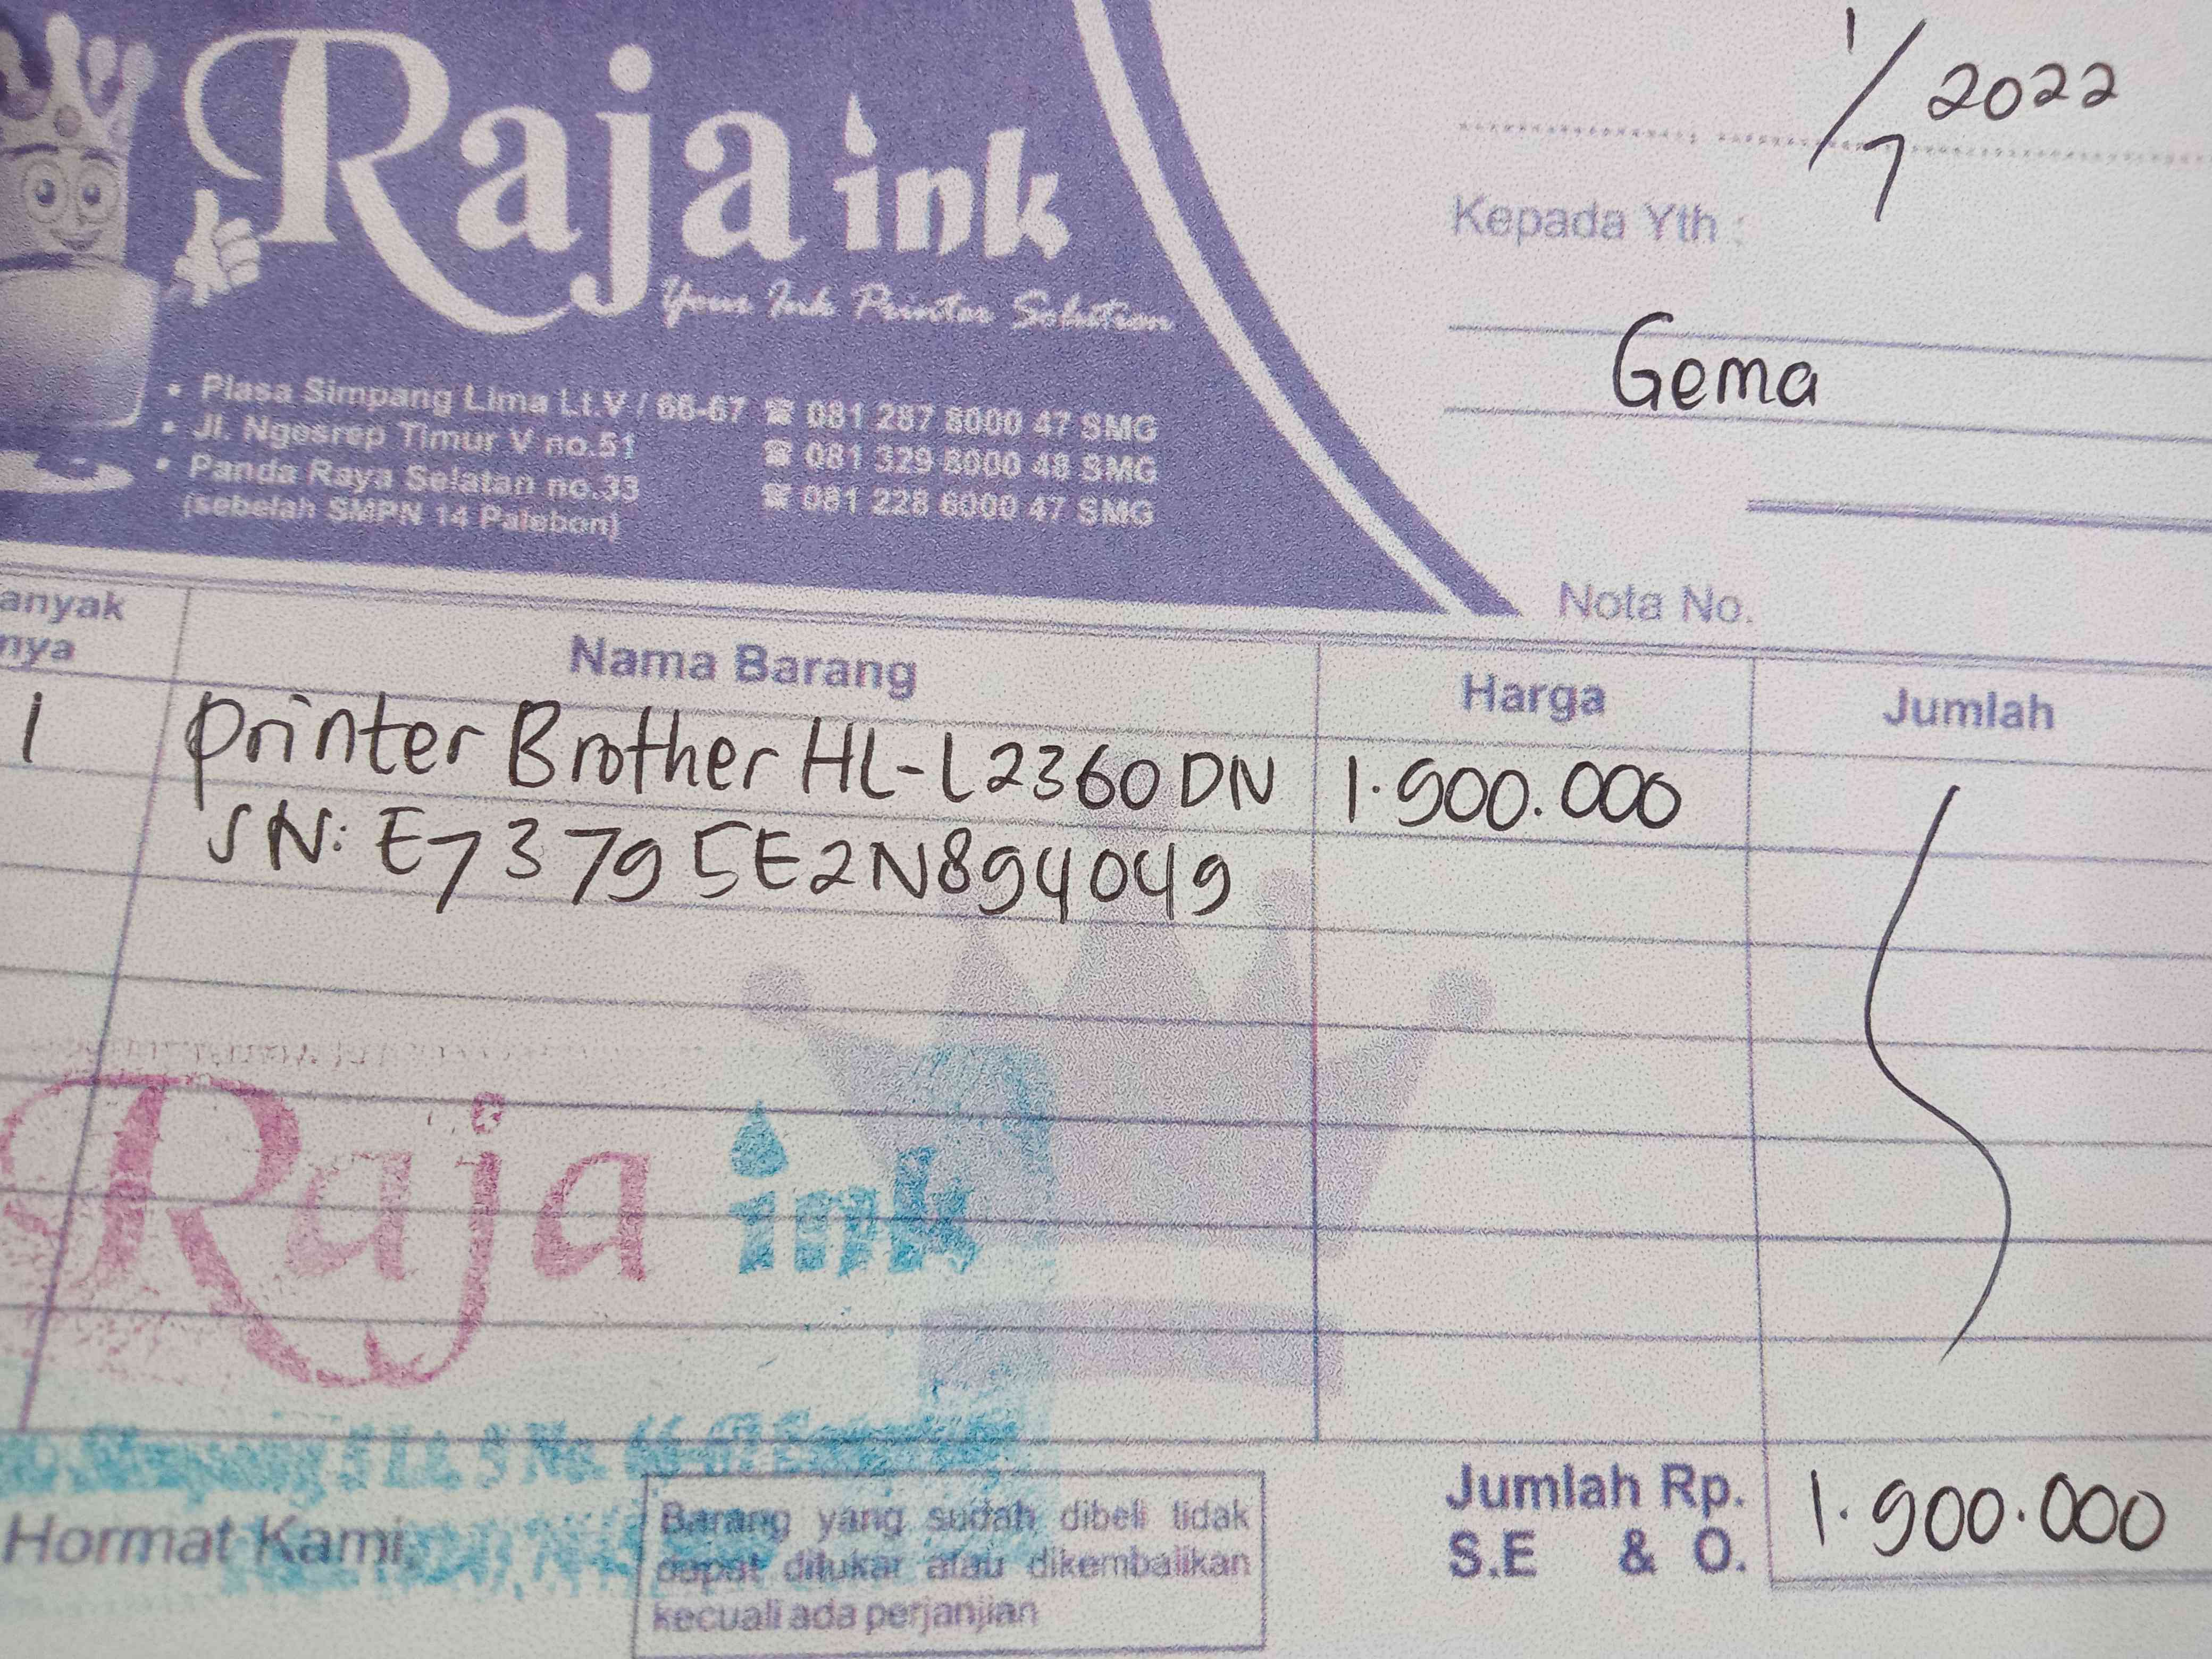 Raja ink
Your Ink Printer Solution
• Plasa Simpang Lima Lt.V / 66-67 ☎ 081 287 8000 47 SMG
• Jl. Ngesrep Timur V no.51 ☎ 081 329 8000 48 SMG
• Panda Raya Selatan no.33 ☎ 081 228 6000 47 SMG
(sebelah SMPN 14 Palebon)
1/7 2022
Kepada Yth :
Gema
Nota No.
anyak
nya
Nama Barang
Harga
Jumlah
1 Printer Brother HL-L2360DN 1.900.000
SN: E73795E2N894049
Raja ink
Simpang 5 Lt. 5 No. 66-67
Hormat Kami,
Barang yang sudah dibeli tidak
dapat ditukar atau dikembalikan
kecuali ada perjanjian
Jumlah Rp. 1.900.000
S.E & O.